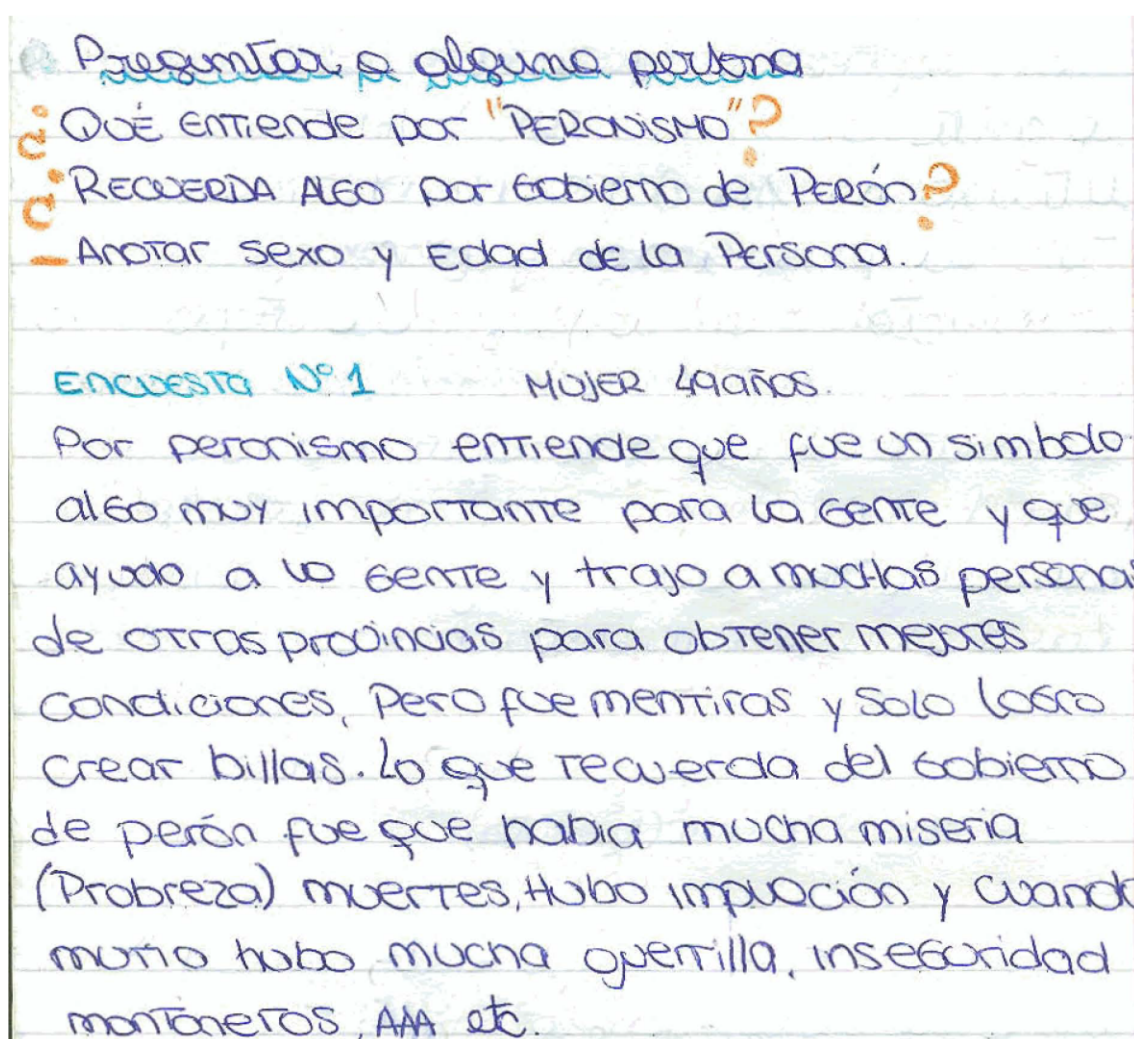 Preguntar a alguna persona
¿Qué entiende por "PERONISMO"?
¿RECUERDA ALGO por Gobierno de PERÓN?
- Anotar sexo y Edad de la Persona.
Encuesta Nº1 MUJER 49 años.
Por peronismo entiende que fue un simbolo
algo muy importante para la gente y que
ayudo a la gente y trajo a muchas personas
de otras provincias para obtener mejores
condiciones, Pero fue mentiras y solo logro
crear billas. Lo que recuerda del gobierno
de perón fue que habia mucha miseria
(Probreza) muertes, Hubo implución y cuando
murio hubo mucha guerrilla, inseguridad
montoneros, AAA etc.